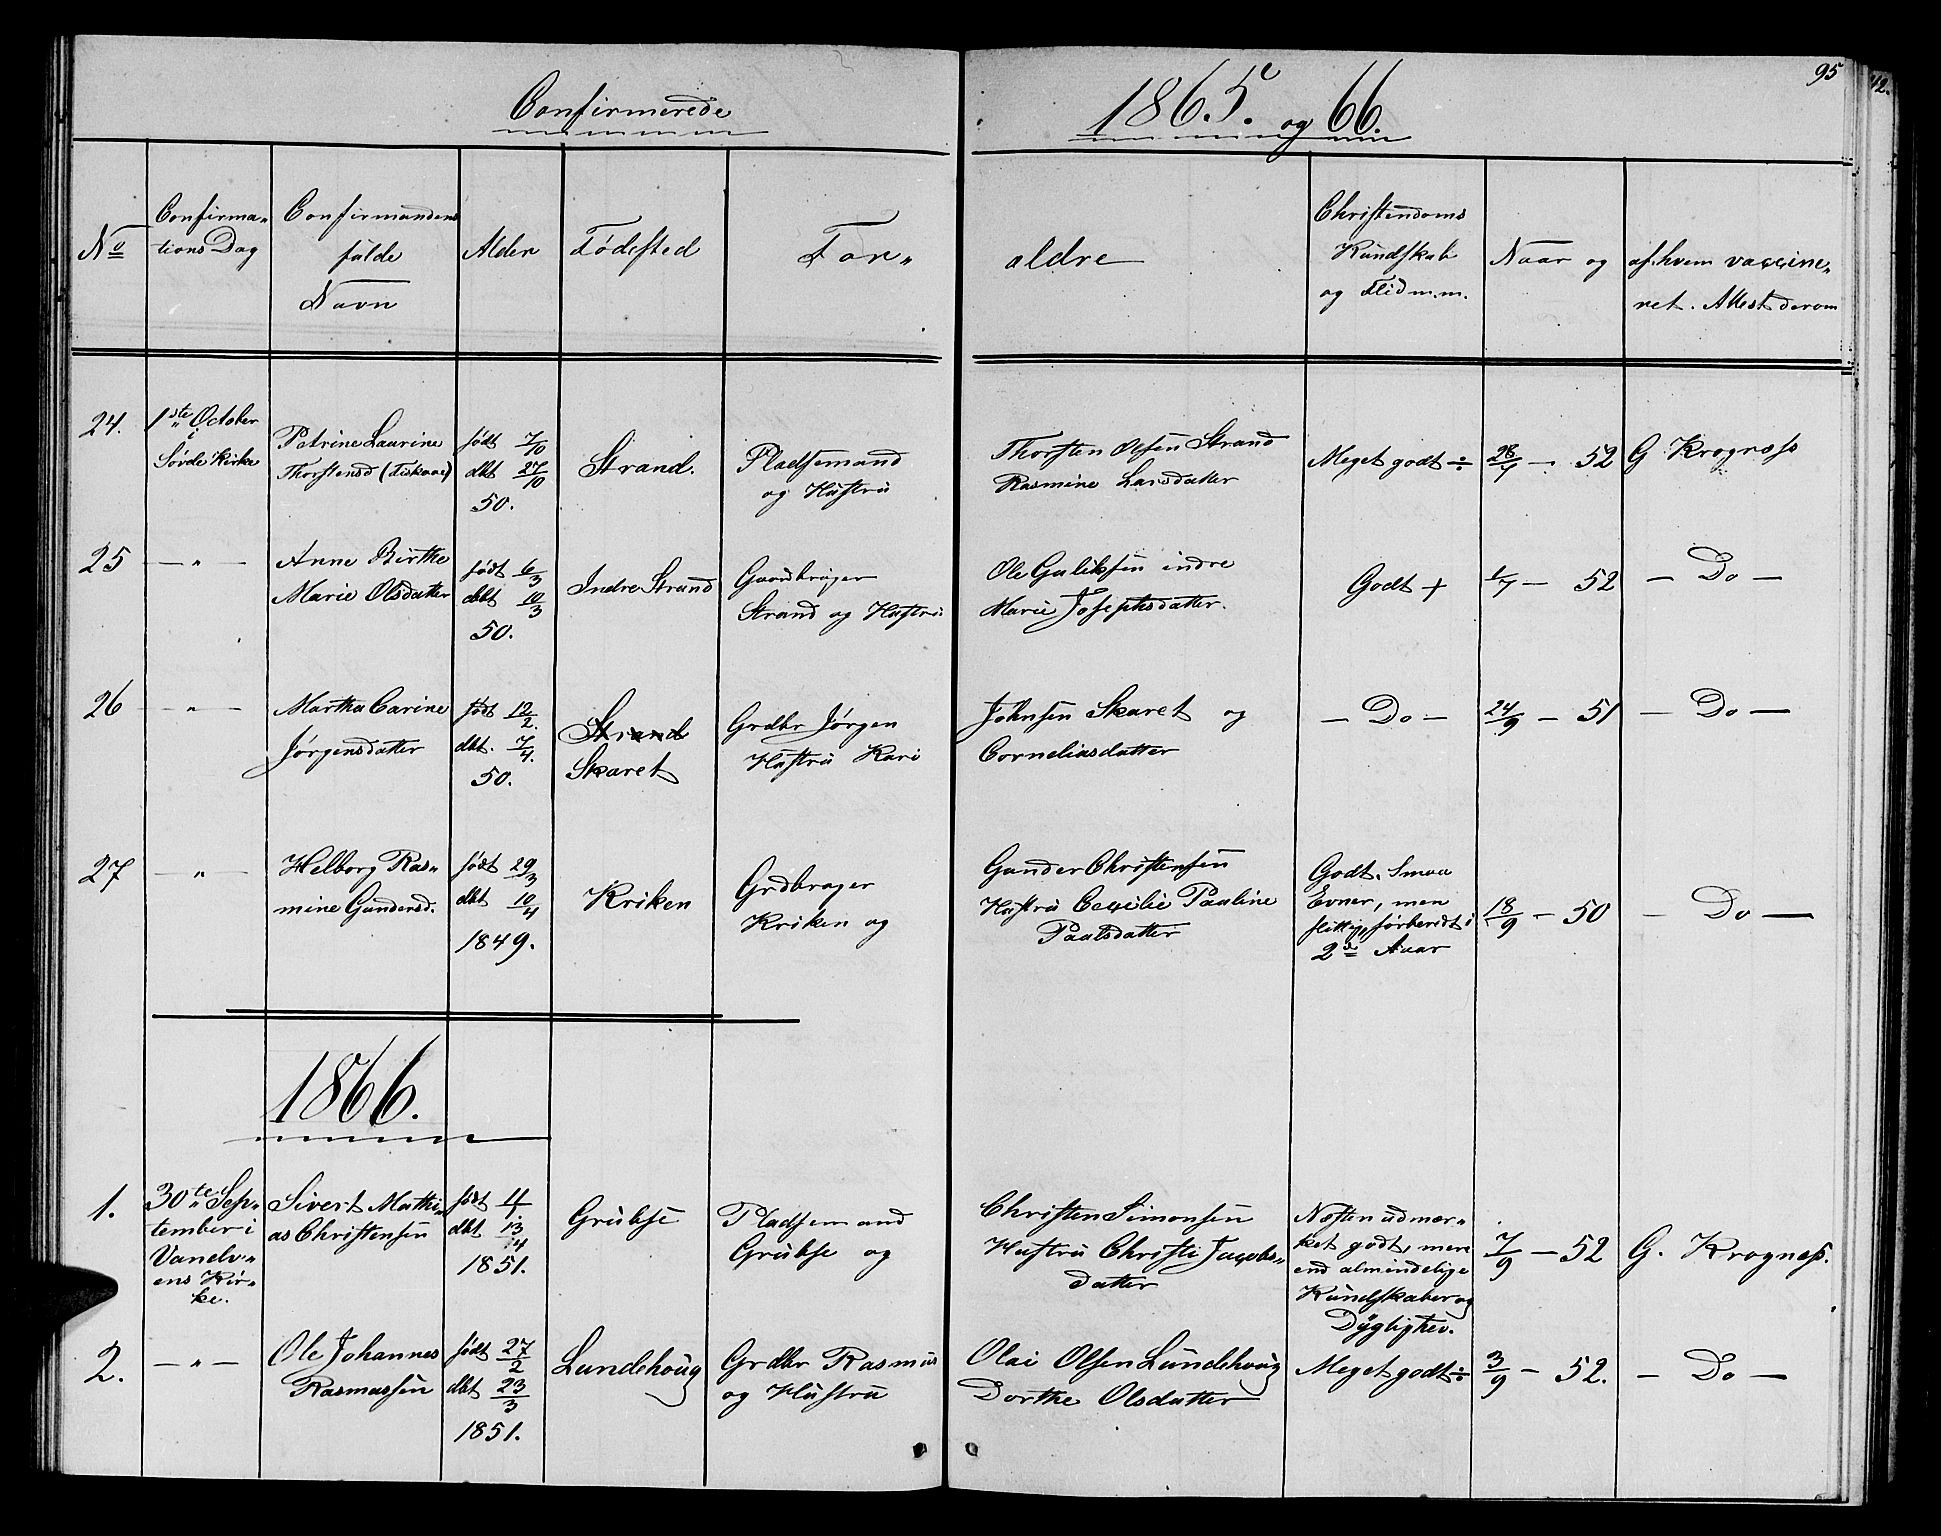 95
42.
Confirmerede
1865. og 66.
No
Confirma-
tions Dag
Confirmandens
fulde
Navn
Alder
Fødested
For-
ældre
Christendoms
Kundskab
og Flid m.m.
Naar og
af hvem vaccine-
ret. Attest derom
24.
1ste October
i
Søvde Kirke
Petrine Laurine
Thorstensd (Fiskaae)
født 7/10
dbt 27/10
50.
Strand.
Pladsemand
og Hustru
Thorsten Olsen Strand
Rasmine Larsdatter
Meget godt ÷
28/7 - 52
G Krogness
25
- " -
Anne Birthe
Marie Olsdatter
født 6/3
dbt 10/3
50.
Indre Strand
Gaardbruger
Strand og Hustru
Ole Guliksen indre
Marie Josephsdatter.
Godt +
1/7 - 52
- Do -
26
- " -
Martha Carine
Jørgensdatter
født 12/2.
dbt. 7/4.
50.
Strand
Skaret
Grdbr Jørgen
Hustru Kari
Johnsen Skaret og
Corneliasdatter
- Do -
24/9 - 51
- Do -
27
- " -
Helborg Ras-
mine Gundersd.
født 29/3
dbt 10/4
1849.
Kriken
Grdbruger
Kriken og
Gunder Christensen
Hustru Cecilie Pauline
Paalsdatter
Godt. Smaa
Evner, men
flittig, forberedt i
2de Aaar
18/9 - 50
- Do -
1866.
1.
30te Sep-
tember i
Vanelv-
ens Kir-
ke.
Sivert Mathi-
as Christensen
født 4/1.
dbt 13/4
1851.
Grubse
Pladsemand
Grubse og
Christen Simonsen
Hustru Christi Jacobs-
datter
Næsten udmær-
ket godt, mere
end almindelige
Kundskaber og
Dygtighed.
7/9 - 52
G. Krogness.
2.
- " -
Ole Johannes
Rasmussen
født 27/2
dbt 23/3
1851.
Lundehoug
Grdbr Rasmus
og Hustru
Olai Olsen Lundehoug
Dorthe Olsdatter
Meget godt ÷
3/9 - 52.
- Do -